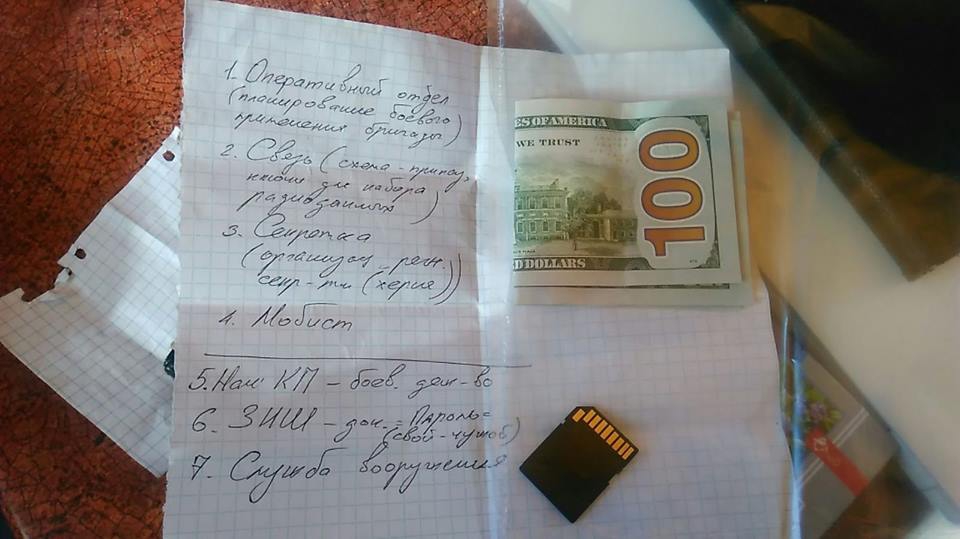 1. Оперативный отдел
(планирование боевого
применения бригады)
2. Связь (схема-
ключи для набора
радиоданных)
3. Секретка
(организац. реж.
секр-ти (херня))
4. Мобист
5. Нач КП – боев. деж-во
6. ЗНШ – док. = Пароль =
(свой-чужой)
7. Служба вооружения
ES OF AMERICA
WE TRUST
100
D DOLLARS